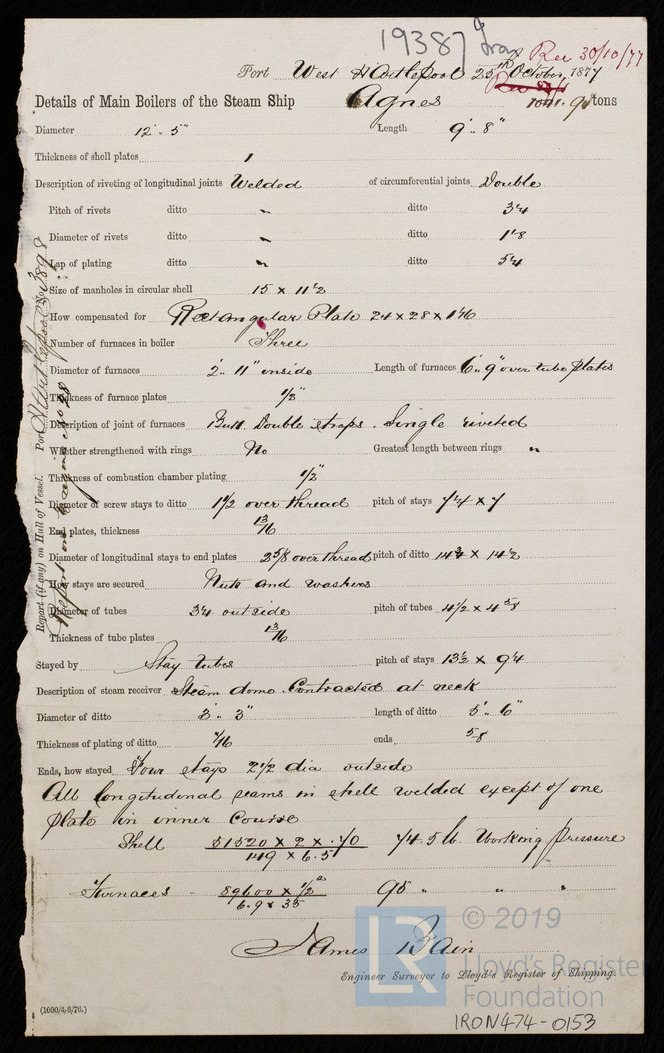 19387 Iron
Rec 30/10/77
Port West Hartlepool 25th October, 1877
Details of Main Boilers of the Steam Ship Agnes tons
Diameter 12'.. 5" Length 9'.. 8"
Thickness of shell plates 1
Description of riveting of longitudinal joints Welded of circumferential joints Double
Pitch of rivets ditto " ditto 3 1/4
Diameter of rivets ditto " ditto 1 1/8
Lap of plating ditto " ditto 5 1/4
Size of manholes in circular shell 15 x 11 1/2
How compensated for Rectangular Plate 24 x 28 x 1 1/16
Number of furnaces in boiler Three
Diameter of furnaces 2'.. 11" inside Length of furnaces 6'.. 9" over tube plates
Thickness of furnace plates 1/2"
Description of joint of furnaces Butt Double straps. Single riveted
Whether strengthened with rings No Greatest length between rings "
Thickness of combustion chamber plating 1/2"
Diameter of screw stays to ditto 1 1/2 over thread pitch of stays 7 1/4 x 7
End plates, thickness 13/16
Diameter of longitudinal stays to end plates 2 5/8 over thread pitch of ditto 14 3/4 x 14 1/2
How stays are secured Nuts and washers
Diameter of tubes 3 1/4 outside pitch of tubes 4 1/2 x 4 5/8
Thickness of tube plates 13/16
Stayed by Stay tubes pitch of stays 13 1/2 x 9 1/4
Description of steam receiver Steam dome. Contracted at neck
Diameter of ditto 3'.. 3" length of ditto 5'.. 6"
Thickness of plating of ditto 7/16 ends 5/8
Ends, how stayed Four stays 2 1/2 dia outside
All longitudinal seams in shell welded except of one
plate in inner Course
Shell 51520 x 2 x .70 74.5 lb. Working pressure
149 x 6.5
Furnaces - 89600 x 1/2² 95 " " "
6.9 x 35
James Bain
Engineer Surveyor to Lloyd's Register of Shipping.
(1000/4/8/76.)
Report (if any) on Hull of Vessel. Port
Report on Engine No
© 2019
LR
Lloyd's Register
Foundation
IRON474-0153